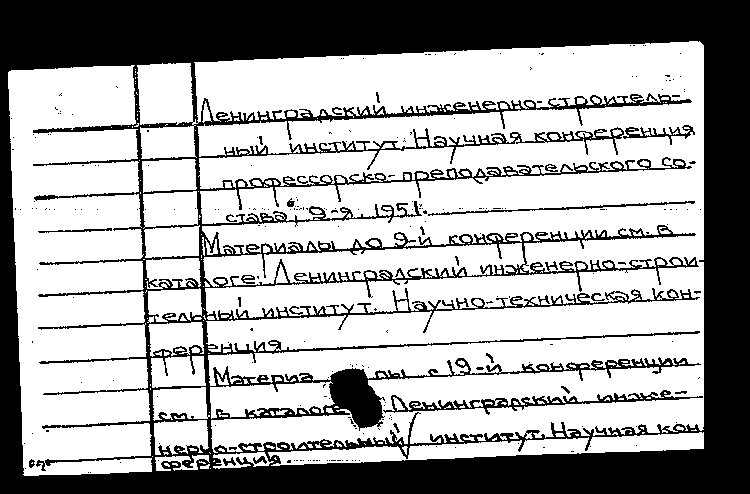 Ленинградский инженерно-строитель-
ный институт. Научная конференция
профессорско-преподавательского со-
става, 9-я. 1951.
Материалы до 9-й конференции см. в
каталоге: Ленинградский инженерно-строи-
тельный институт. Научно-техническая кон-
ференция.
Материа лы с 19-й конференции
см. в каталоге Ленинградский инже-
нерно-строительный институт. Научная кон
ференция.